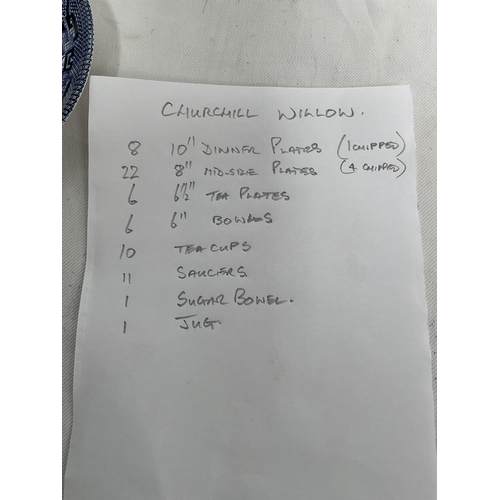 CHURCHILL WILLOW.
8 10" DINNER PLATES (1 CHIPPED)
22 8" MIDSIZE PLATES (4 CHIPPED)
6 6½" TEA PLATES
6 6" BOWLS
10 TEA CUPS
11 SAUCERS
1 SUGAR BOWEL.
1 JUG.